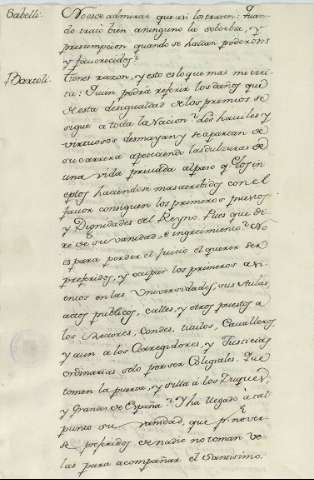 Sabelli: No es de admirar que asi los traten: Quan-
do trató bien a ninguno la soberbia, y
presumpcion quando se hallan poderosos
y favorecidos?
Tienes razon, y esto es lo que mas me irri-
ta: Quien podrá referir los daños que
de esta desigualdad de los premios se
sigue a toda la Nacion? Los haviles y
virtuosos desmayan y se apartan de
su carrera apeteciendo las dulzuras de
una vida privada
haciendose mas atrevidos con el
favor consiguen los primeros puestos
y Dignidades del Reyno. Pues que di-
re de su vanidad, è engreimiento? No
es para perder el juicio el querer ser
preferidos, y ocupar los primeros asi-
entos en las Universidades, sus Aulas,
actos publicos, calles, y otros puestos a
los Rectores, Condes, titulos, Cavalleros
y aun a los Corregidores, y Justicias
ordinarias solo por ser Colegiales. Que
tomen la puerta, y silla á los Duques,
y Grandes de España? Y ha llegado à tal
punto su vanidad, que p.r no ver-
se preferidos de nadie no toman ve-
las para acompañar el Santisimo.